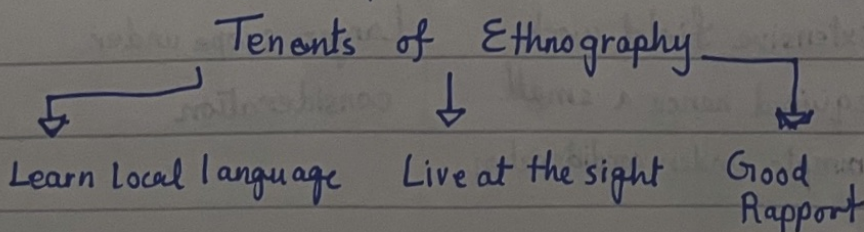 Tenents of Ethnography
Learn local language Live at the sight Good
Rapport